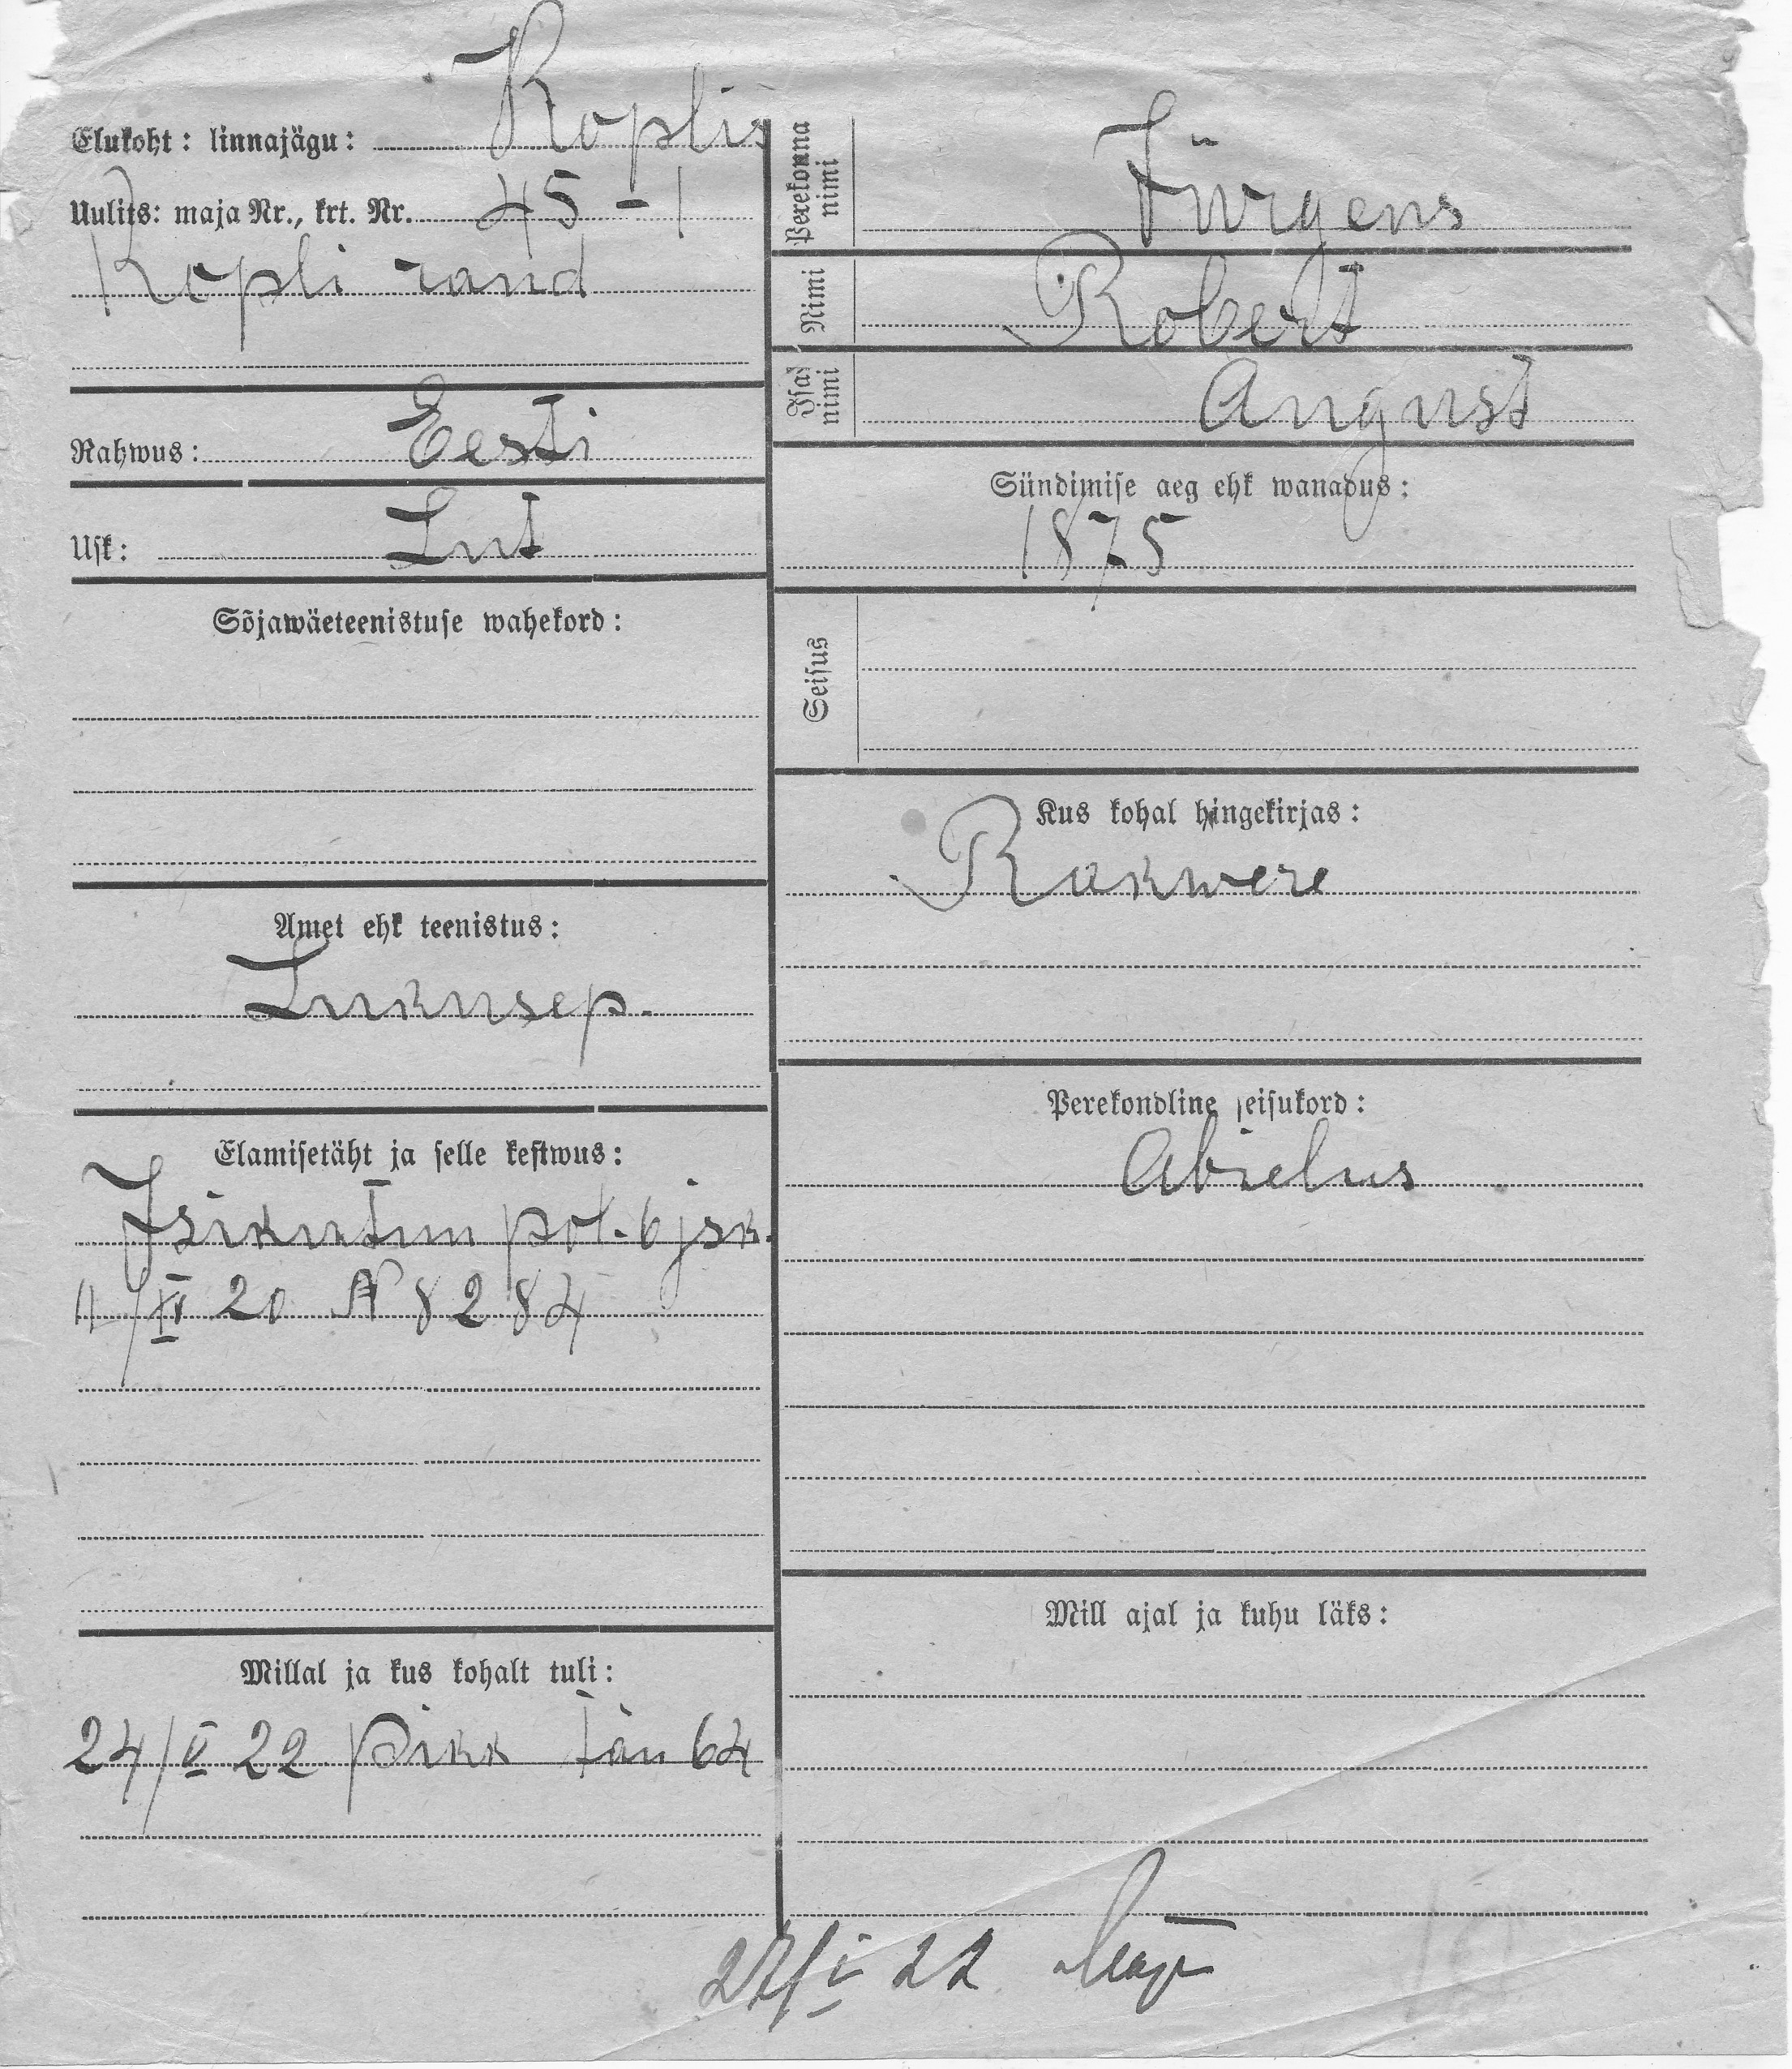 Elukoht: linnajägu: Koplis
Uulits: maja Nr., krt. Nr. 45 - 1
Kopli rand
Rahwus: Eesti
Usk: Lut
Sõjawäeteenistuse wahekord:
Amet ehk teenistus:
Lukusep.
Elamisetäht ja selle kestwus:
Isikutun pol. 6 jsk.
XI 20 N 8284
Millal ja kus kohalt tuli:
24/V 22 Pikk tän 64
Perekonna nimi Jürgens
Nimi Robert
Isa nimi August
Sündimise aeg ehk wanadus:
1875
Seisus
Kus kohal hingekirjas:
Rakwere
Perekondline seisukord:
Abielus
Mill ajal ja kuhu läks:
22